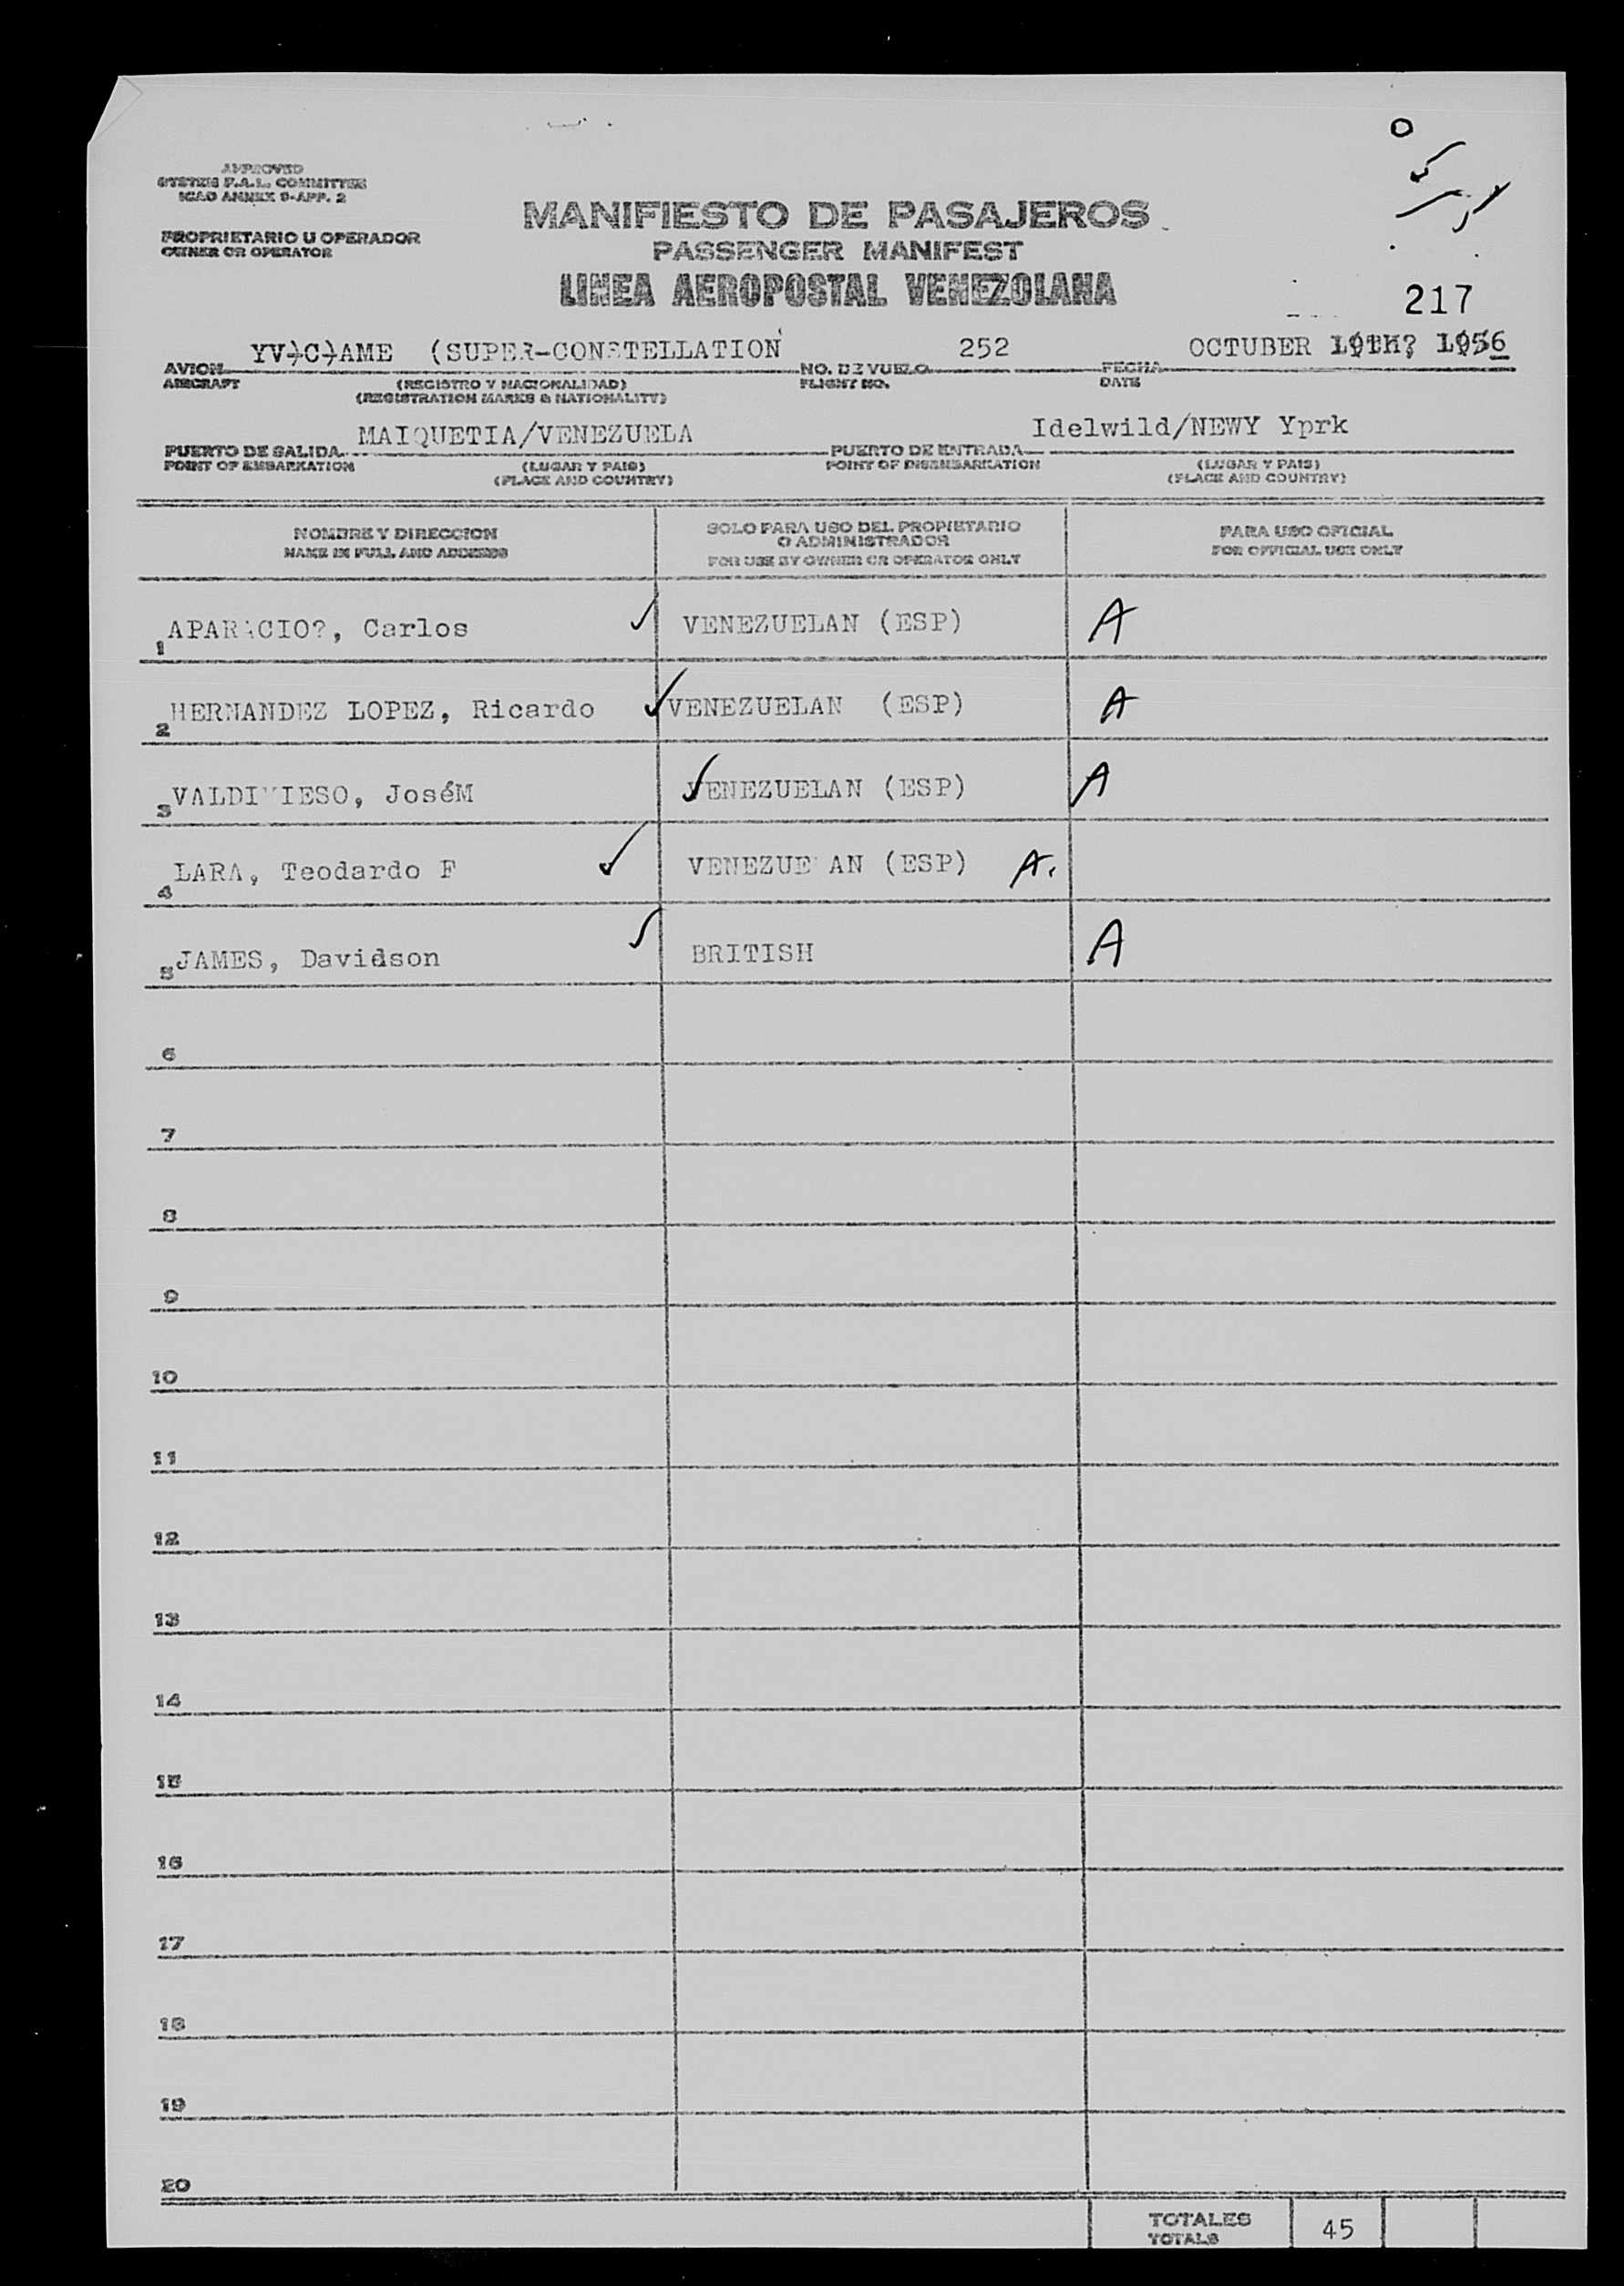 APPROVED
SYSTEM F.A.L. COMMITTEE
ICAO ANNEX 9-APP. 2
PROPRIETARIO U OPERADOR
OWNER OR OPERATOR
MANIFIESTO DE PASAJEROS
PASSENGER MANIFEST
LINEA AEROPOSTAL VENEZOLANA
217
AVION YV-C-AME (SUPER-CONSTELLATION NO. DE VUELO 252 FECHA OCTUBER 19TH? 1956
AIRCRAFT (REGISTRO Y NACIONALIDAD) FLIGHT NO. DATE
(REGISTRATION MARKS & NATIONALITY)
PUERTO DE SALIDA MAIQUETIA/VENEZUELA PUERTO DE ENTRADA Idelwild/NEWY Yprk
POINT OF EMBARKATION (LUGAR Y PAIS) POINT OF DISEMBARKATION (LUGAR Y PAIS)
(PLACE AND COUNTRY) (PLACE AND COUNTRY)
NOMBRE Y DIRECCION SOLO PARA USO DEL PROPIETARIO PARA USO OFICIAL
O ADMINISTRADOR
NAME IN FULL AND ADDRESS FOR USE BY OWNER OR OPERATOR ONLY FOR OFFICIAL USE ONLY
1 APARACIO?, Carlos ✓ VENEZUELAN (ESP) A
2 HERNANDEZ LOPEZ, Ricardo ✓ VENEZUELAN (ESP) A
3 VALDIVIESO, JoséM ✓ VENEZUELAN (ESP) A
4 LARA, Teodardo F ✓ VENEZUE AN (ESP) A.
5 JAMES, Davidson ✓ BRITISH A
6
7
8
9
10
11
12
13
14
15
16
17
18
19
20
TOTALES 45
TOTALS